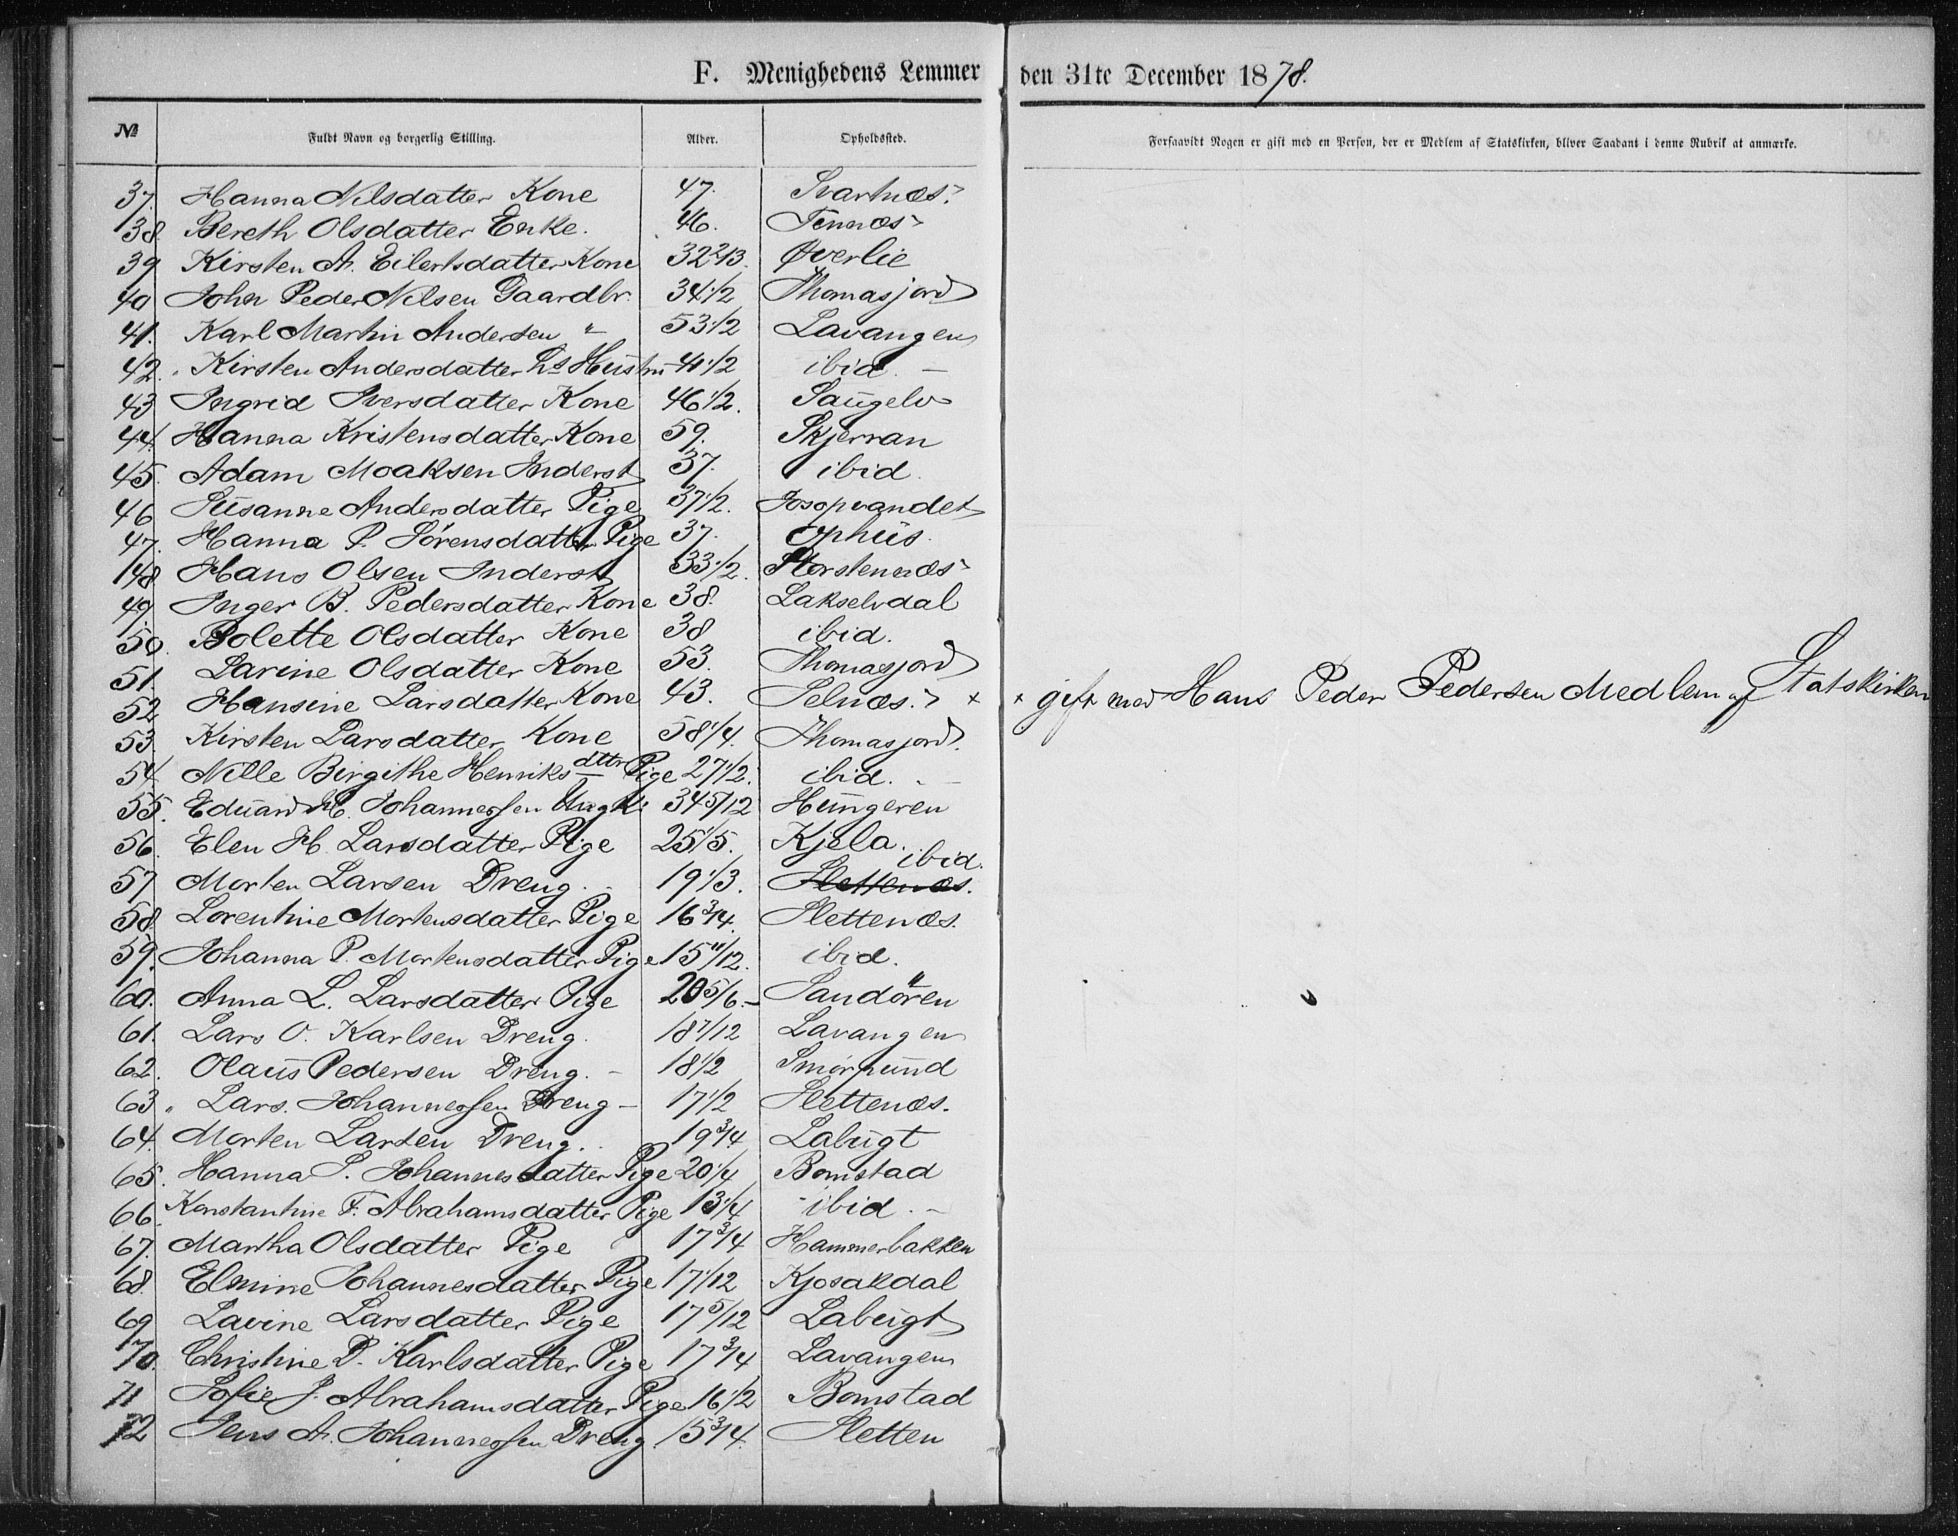 F. Menighedens Lemmer den 31te December 1878.
№ Fuldt Navn og borgerlig Stilling. Alder. Opholdssted. Forsaavidt Nogen er gift med en Person, der er Medlem af Statskirken, bliver Saadant i denne Rubrik at anmærke.
37. Hanna Nilsdatter Kone 47. Svartnæs.
38. Bereth Olsdatter Enke. 46. Tennæs
39 Kirsten A. Eilertsdatter Kone 32 2/3. Øverlie
40 John Peder Nilsen Gaardbr. 34 1/2 Thomasjord
41. Karl Martin Andersen " 53 1/2 Lavangen
42. Kirsten Andersdatter hs Hustru 41 1/2 ibid. -
43 Ingrid Iversdatter Kone 46 1/2. Saugelv
44. Hanna Kristensdatter Kone 59. Skjerran
45. Adam Moaksen Inderst 37. ibid.
46 Susanne Andersdatter Pige 37 1/2. Josopvandet
47. Hanna P. Sørensdatter Pige 37. Ophus.
48. Hans Olsen Inderst 33 1/2. Storstennæs
49. Inger B. Pedersdatter Kone 38. Lakselvdal
50. Bolette Olsdatter Kone 38 ibid.
51. Larine Olsdatter Kone 53. Thomasjord
52 Hansine Larsdatter Kone 43. Selnæs. × × gift med Hans Peder Pedersen Medlem af Statskirken
53. Kirsten Larsdatter Kone 58 1/4. Thomasjord.
54. Nille Birgithe Henriksdttr Pige 27 1/2. ibid. -
55. Eduard M. Johannessen Ungk. 34 5/12 Hungeren
56. Elen H. Larsdatter Pige 25 1/5. Kjela.
57 Morten Larsen Dreng. 19 1/3. Slettenæs. ibid.
58. Lorentine Mortensdatter Pige 16 3/4. Slettenæs.
59. Johanna P. Mortensdatter Pige 15 11/12. ibid.
60. Anna L. Larsdatter Pige 20 5/6. Sandøren
61. Lars O. Karlsen Dreng. 18 7/12 Lavangen
62. Olaus Pedersen Dreng. - 18 1/2 Smørsund
63. Lars. Johannessen Dreng - 17 1/2 Slettenæs.
64. Morten Larsen Dreng. 19 3/4 Labugt
65. Hanna S. Johannesdatter Pige 20 1/4 Bomstad
66. Konstantine F. Abrahamsdatter Pige 13 1/4 ibid. -
67. Martha Olsdatter Pige 17 3/4 Hammerbakken
68. Elmine Johannesdatter Pige 17 1/12 Kjosakdal
69 Lavine Larsdatter Pige 17 5/12 Labugt
70. Christine D. Karlsdatter Pige 17 3/4 Lavangen
71 Sofie J. Abrahamsdatter Pige 16 1/2 Bomstad
72 Jens A. Johannessen Dreng 15 3/4. Sletten